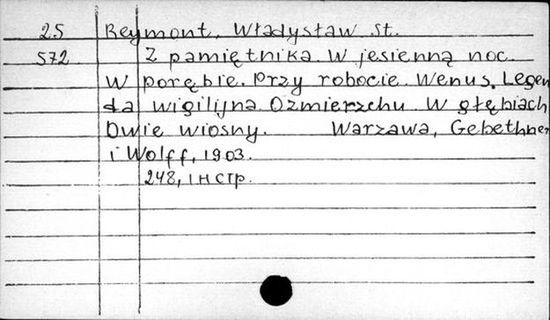 25 Reymont, Władysław St.
572 Z pamiętnika. W jesienną noc.
W porębie. Przy robocie. Wenus. Legen
da wigilijna. O zmierzchu. W głębiach
Dwie wiosny. Warzawa, Gebethner
i Wolff, 1903.
248, 1 н стр.